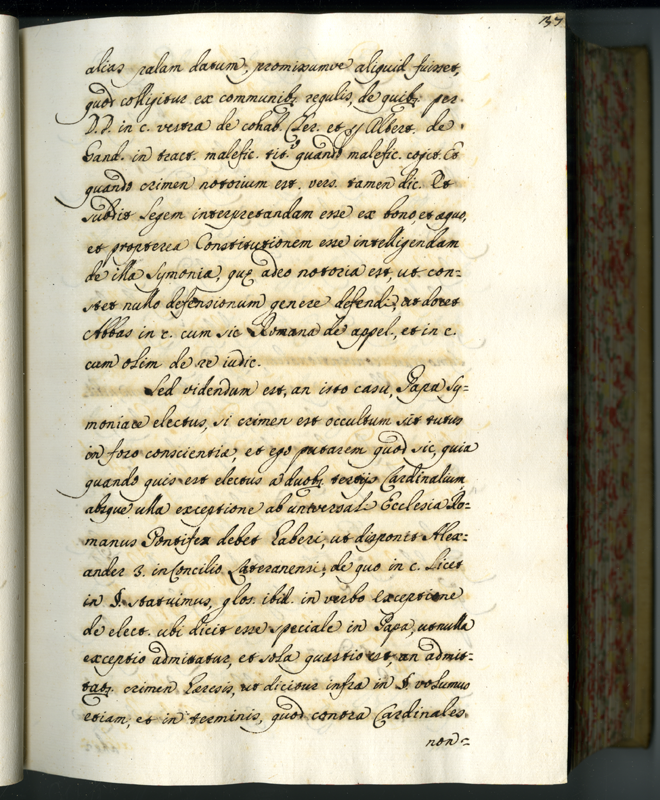 137
alias palam datum, promissumve aliquid fuisset,
quod colligitur ex communib9 regulis, de quib9 per
D.D. in c. vestra de cohab. Cler. et Albert. de
Gand. in tract. malefic. tit.o quando malefic. cogit. Et
quando crimen notorium est. vers. tamen dic. Et
subdit legem interpretandam esse ex bono, et æquo,
et propterea Constitutionem esse intelligendam
de illa symonia, quæ adeo notoria est, ut con=
stet nullo defensionum genere defendi, ut docet
Abbas in c. cum sic Romana de appel., et in c.
cum olim de re iudic.
Sed videndum est, an isto casu, Papa sy=
moniace electus, si crimen est occultum sit tutus
in foro conscientiæ, et ego putarem quod sic, quia
quando quis est electus a duob9 tertijs Cardinalium
absque ulla exceptione ab universali Ecclesia Ro=
manus Pontifex debet haberi, ut disponit Alex=
ander 3. in Concilio Lateranensi, de quo in c. licet
in §. statuimus, glos. ibid. in verbo exceptione
de elect. ubi dicit esse speciale in Papa, ut nulla
exceptio admitatur, et sola quæstio est, an admit=
tat9 crimen hæresis, ut dicitur infra in § volumus
etiam, et in terminis, quod contra Cardinales
non=